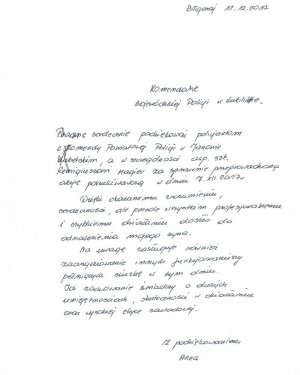 Biłgoraj 12.12.2017
Komendant
Wojewódzkiej Policji w Lublinie
Pragnę serdecznie podziękować policjantom
z Komendy Powiatowej Policji w Janowie
Lubelskim, a w szczególności asp. szt.
za sprawnie przeprowadzoną
akcję poszukiwawczą w dniu 7.XII 2017
Dzięki okazanemu zrozumieniu,
serdeczności, ale przede wszystkim profesjonalnemu
i szybkiemu działaniu doszło do
odnalezienia mojego syna.
Na uwagę zasługuje również
zaangażowanie innych funkcjonariuszy
pełniących służbę w tym dniu.
Ich zachowanie świadczy o dużych
umiejętnościach, skuteczności w działaniu
oraz wysokiej etyce zawodowej.
Z podziękowaniami
Anna